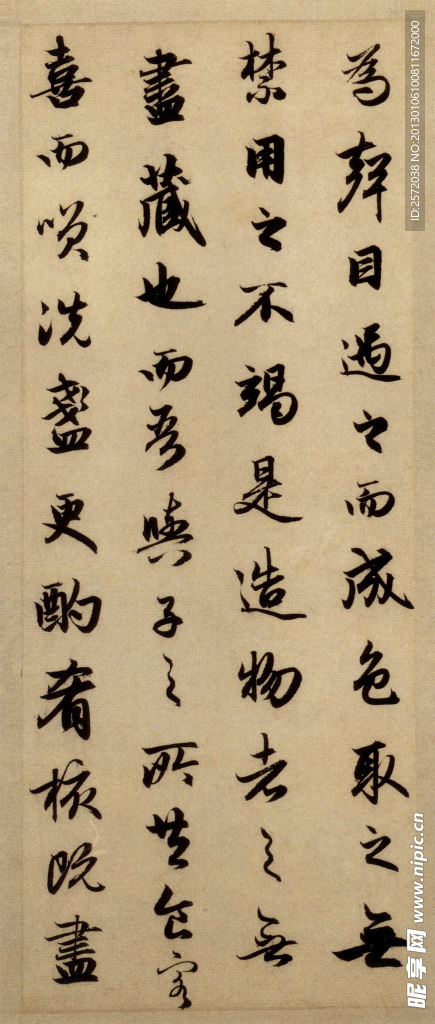 為聲目遇之而成色取之無
禁用之不竭是造物者之無
盡藏也而吾與子之所共食客
喜而咲洗盞更酌肴核既盡
ID:2572038 NO:20130106100811672000
昵享网 www.nipic.cn